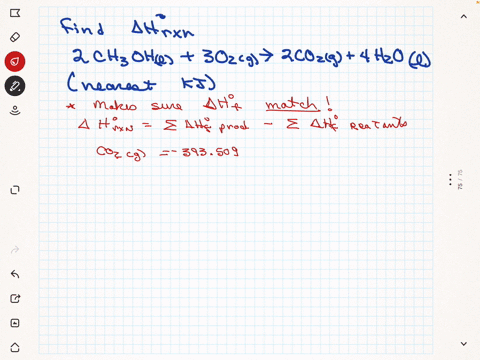 Find ΔH°rxn
2CH3OH(l) + 3O2(g) → 2CO2(g) + 4H2O(l)
(nearest kJ)
* Makes sure ΔH°f match!
ΔH°rxn = Σ ΔH°f prod - Σ ΔH°f Reactants
CO2(g) = -393.509
76 / 76